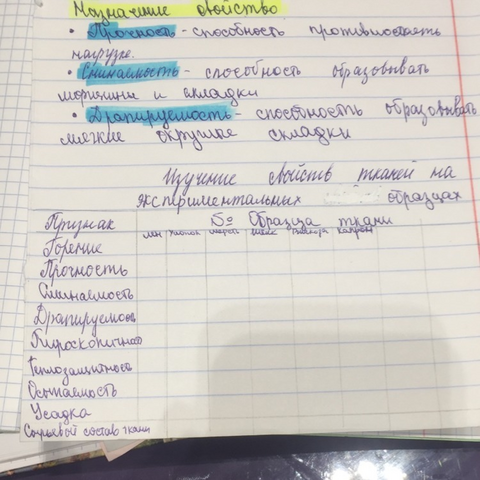 Назначение свойство
• Прочность - способность противостоять
нагрузке.
• Сминаемость - способность образовывать
морщины и складки
• Драпируемость - способность образовывать
мягкие округлые складки
Изучение свойств тканей на
экспериментальных образцах
Признак № Образца ткани
лён хлопок шерсть шёлк капрон
Горение
Прочность
Сминаемость
Драпируемость
Гигроскопичност
Теплозащитность
Осыпаемость
Усадка
Сырьевой состав ткани